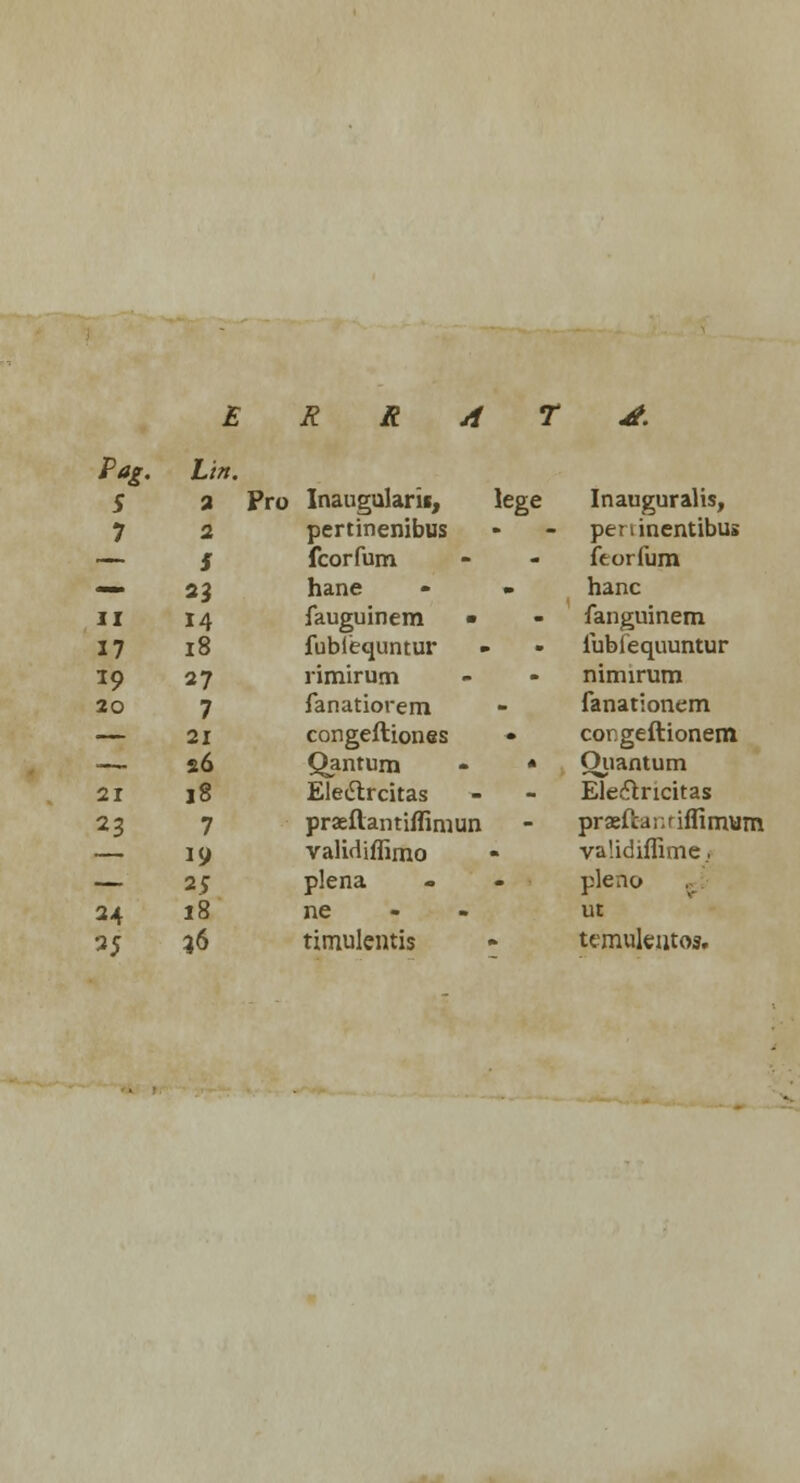 E R R A T A.
Pag. Lin.
5 2 Pro Inaugularis, lege Inauguralis,
7 2 pertinenibus - - pertinentibus
— 5 ſcorſum - - ſeorſum
— 23 hane - - hanc
11 14 ſauguinem - - ſanguinem
17 18 ſubſequntur - - ſubſequuntur
19 27 rimirum - - nimirum
20 7 ſanatiorem - ſanationem
— 21 congeſtiones - congeſtionem
— 26 Qantum - - Quantum
21 18 Electrcitas - - Electricitas
23 7 præſtantiſſimun - præſtantiſſimum
— 19 validiſſimo - validiſſime,
— 25 plena - - pleno
24 18 ne - - ut
25 26 timulentis - temulentos.